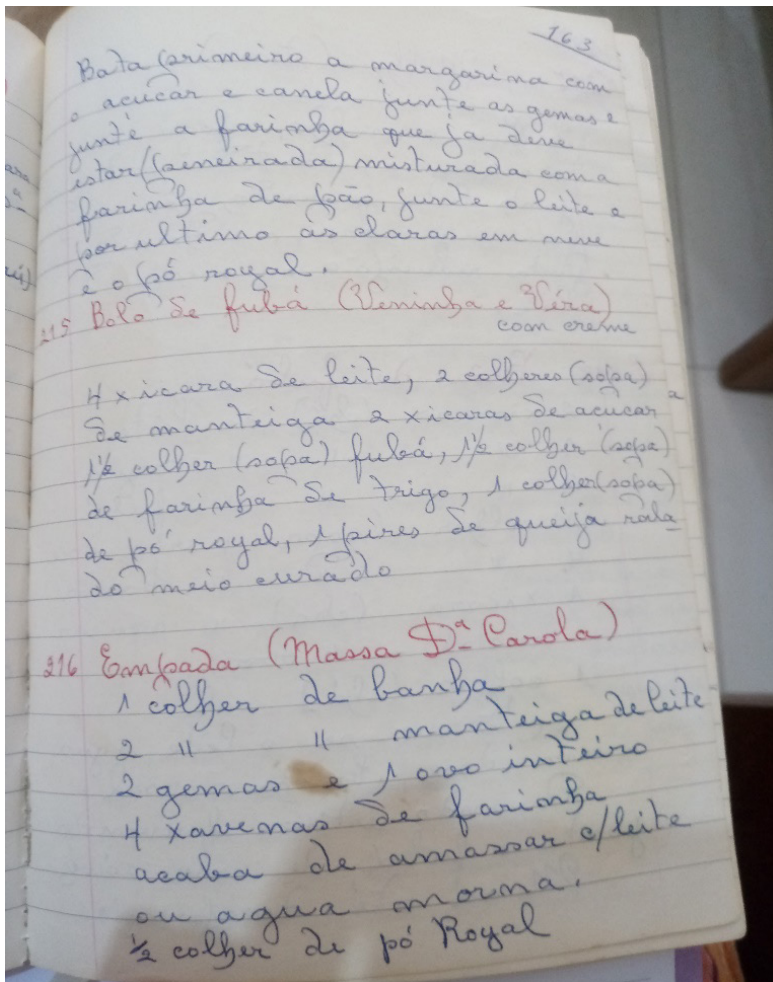 163
Bata primeiro a margarina com
o acucar e canela junte as gemas e
junte a farinha que ja deve
estar (peneirada) misturada com a
farinha de pão, junte o leite e
por ultimo as claras em neve
e o pó royal.
215 Bolo de fubá (Veninha e Véra)
com creme
4 xicara de leite, 2 colheres (sopa)
de manteiga 2 xicaras de acucar
1½ colher (sopa) fubá, 1½ colher (sopa)
de farinha de trigo, 1 colher (sopa)
de pó royal, 1 pires de queija rala
do meio curado
216 Empada (Massa Dª Carola)
1 colher de banha
2 " " manteiga de leite
2 gemas e 1 ovo inteiro
4 xavenas de farinha
acaba de amassar c/leite
ou agua morna.
½ colher de pó Royal